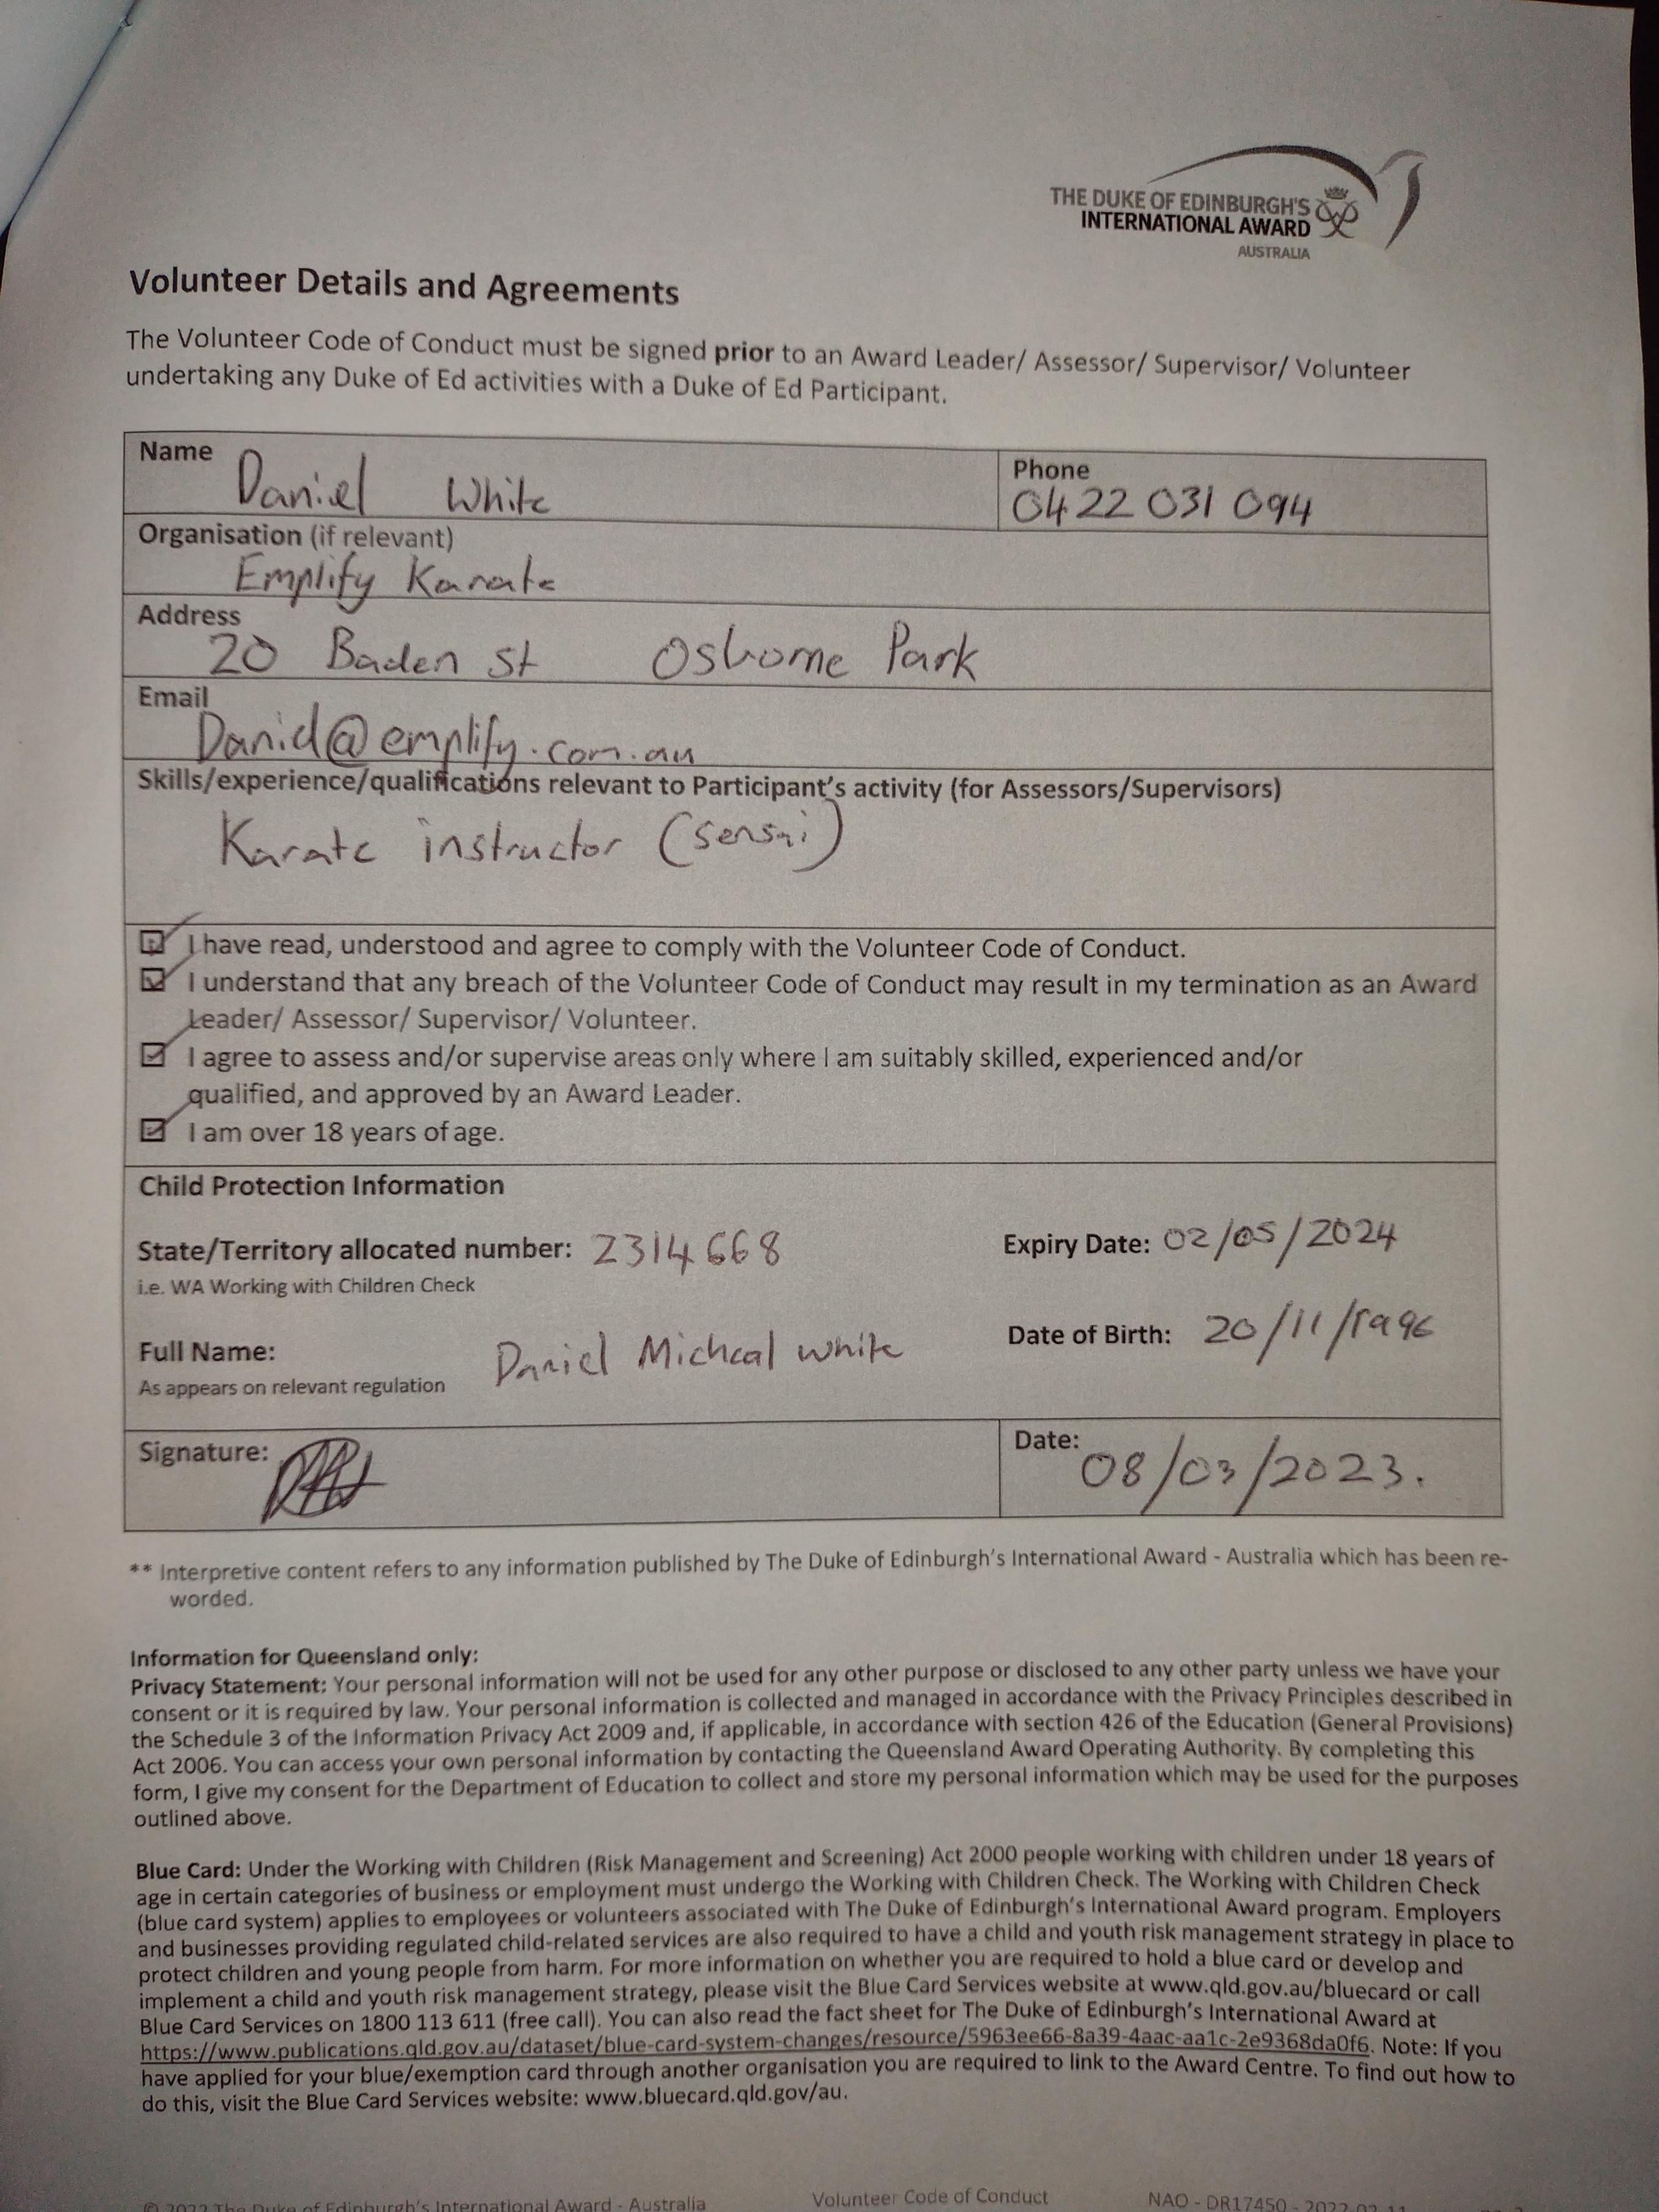 THE DUKE OF EDINBURGH'S
INTERNATIONAL AWARD
AUSTRALIA
Volunteer Details and Agreements
The Volunteer Code of Conduct must be signed prior to an Award Leader/ Assessor/ Supervisor/ Volunteer
undertaking any Duke of Ed activities with a Duke of Ed Participant.
Name
Daniel White
Phone
0422 031 094
Organisation (if relevant)
Emplify Karate
Address
20 Baden st Osborne Park
Email
Daniel@emplify.com.au
Skills/experience/qualifications relevant to Participant's activity (for Assessors/Supervisors)
Karate instructor (sensai)
I have read, understood and agree to comply with the Volunteer Code of Conduct.
I understand that any breach of the Volunteer Code of Conduct may result in my termination as an Award
Leader/ Assessor/ Supervisor/ Volunteer.
I agree to assess and/or supervise areas only where I am suitably skilled, experienced and/or
qualified, and approved by an Award Leader.
I am over 18 years of age.
Child Protection Information
State/Territory allocated number: 2314668
Expiry Date: 02/05/2024
i.e. WA Working with Children Check
Full Name: Daniel Micheal White
Date of Birth: 20/11/1996
As appears on relevant regulation
Signature:
Date: 08/03/2023.
** Interpretive content refers to any information published by The Duke of Edinburgh's International Award - Australia which has been re-
worded.
Information for Queensland only:
Privacy Statement: Your personal information will not be used for any other purpose or disclosed to any other party unless we have your
consent or it is required by law. Your personal information is collected and managed in accordance with the Privacy Principles described in
the Schedule 3 of the Information Privacy Act 2009 and, if applicable, in accordance with section 426 of the Education (General Provisions)
Act 2006. You can access your own personal information by contacting the Queensland Award Operating Authority. By completing this
form, I give my consent for the Department of Education to collect and store my personal information which may be used for the purposes
outlined above.
Blue Card: Under the Working with Children (Risk Management and Screening) Act 2000 people working with children under 18 years of
age in certain categories of business or employment must undergo the Working with Children Check. The Working with Children Check
(blue card system) applies to employees or volunteers associated with The Duke of Edinburgh's International Award program. Employers
and businesses providing regulated child-related services are also required to have a child and youth risk management strategy in place to
protect children and young people from harm. For more information on whether you are required to hold a blue card or develop and
implement a child and youth risk management strategy, please visit the Blue Card Services website at www.qld.gov.au/bluecard or call
Blue Card Services on 1800 113 611 (free call). You can also read the fact sheet for The Duke of Edinburgh's International Award at
https://www.publications.qld.gov.au/dataset/blue-card-system-changes/resource/5963ee66-8a39-4aac-aa1c-2e9368da0f6. Note: If you
have applied for your blue/exemption card through another organisation you are required to link to the Award Centre. To find out how to
do this, visit the Blue Card Services website: www.bluecard.qld.gov/au.
© 2022 The Duke of Edinburgh's International Award - Australia Volunteer Code of Conduct NAO - DR17450 - 2022-02-11